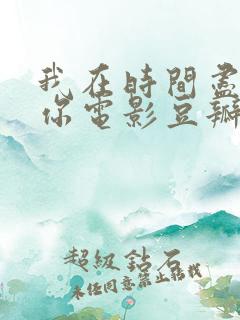 我在時間盡
你電影豆瓣
超級鉆石
未经同意禁止转载